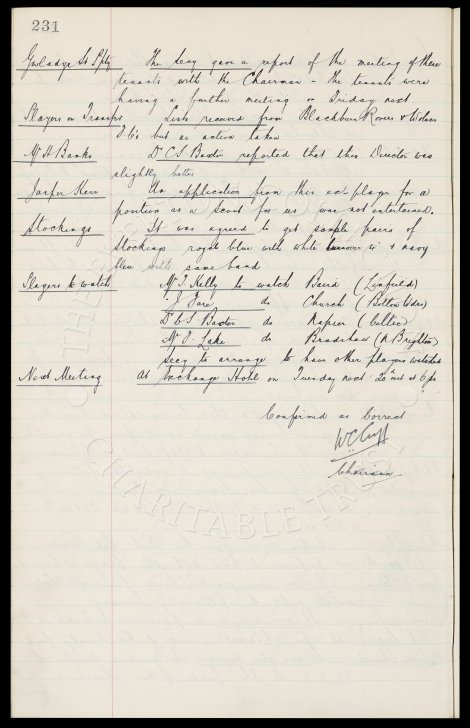 231
Gwladys St Ppty The Secy gave a report of the meeting of these
tenants with the Chairman - The tenants were
having a further meeting on Friday next
Players on Transfer Lists received from Blackburn Rovers & Wolves
but no action taken
Mr H. Banks Dr C.S. Baxter reported that this Director was
slightly better
Jasper Kerr An application from this ex player for a
position as a scout for us was not entertained.
Stockings It was agreed to get sample pairs of
stockings royal blue with white turnover & navy
blue with same band
Players to watch Mr T. Kelly to watch Baird (Linfield)
do Church (Bolton Wdrs)
Dr C.S. Baxter do Napier (Celtic)
Mr do Bradshaw (N Brighton)
Secy to arrange to have other players watched
Next Meeting At Exchange Hotel on Tuesday next 20th inst at 6 pm
Confirmed as Correct
W.C. Cuff
Chairman
CHARITABLE TRUST